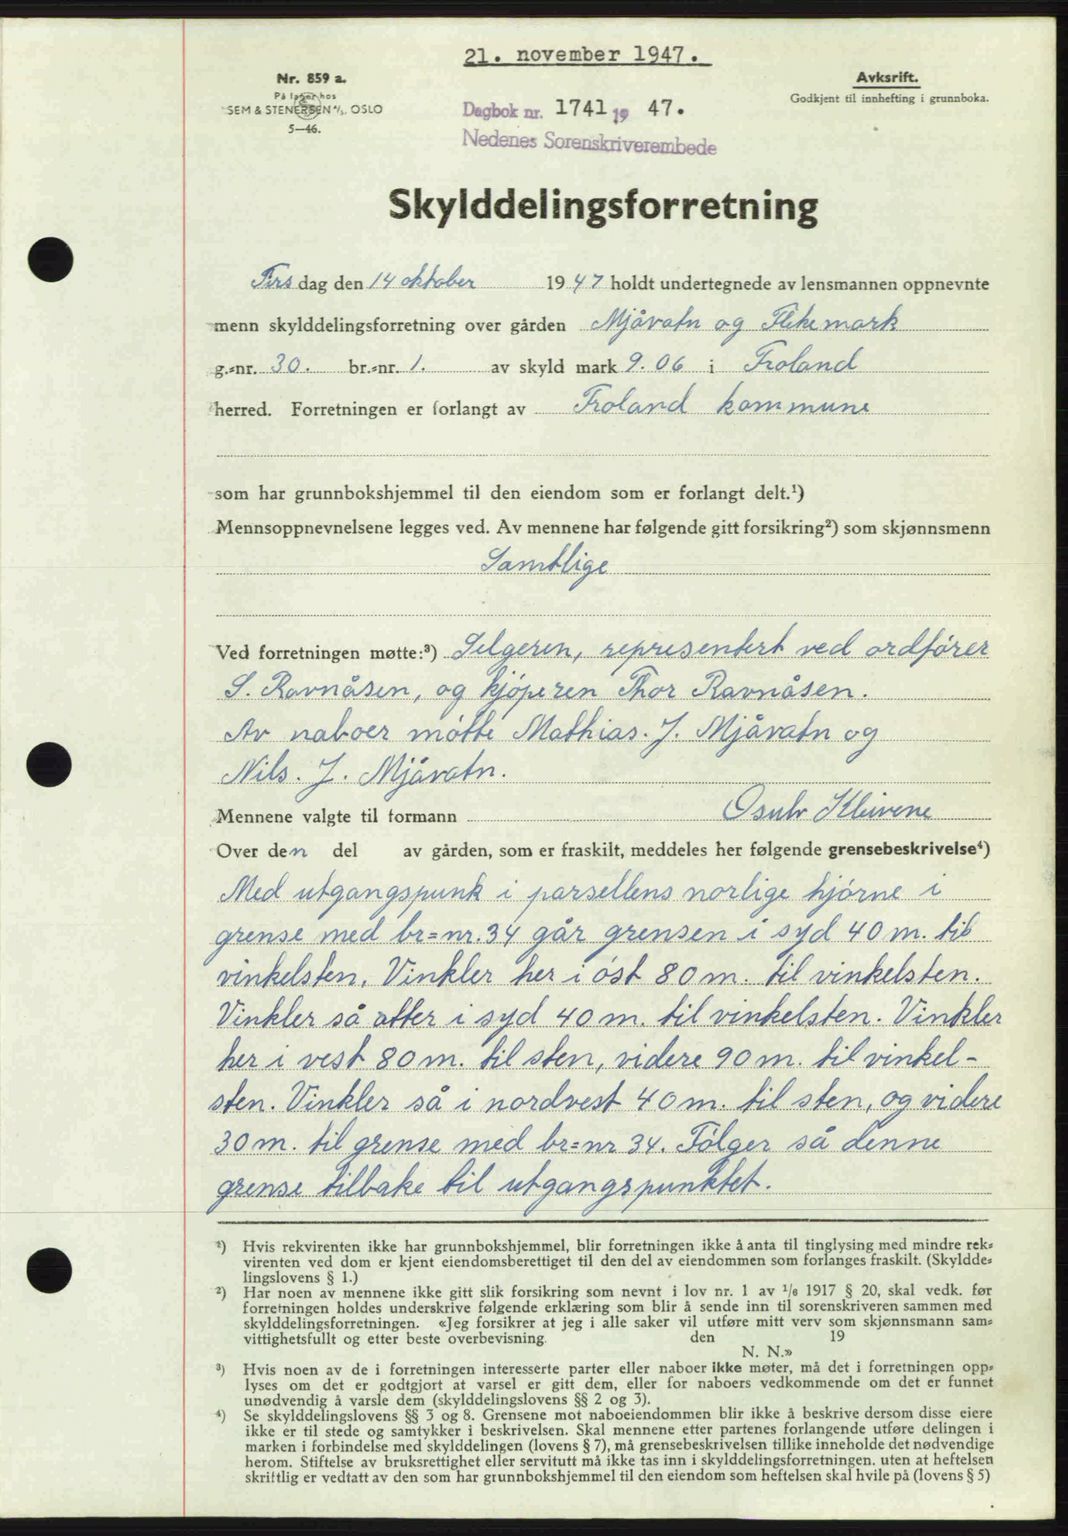 21. november 1947.
Nr. 859 a.
På lager hos
SEM & STENERSEN A/S, OSLO
5—46.
Avkrift.
Godkjent til innhefting i grunnboka.
Dagbok nr. 1741 19 47.
Nedenes Sorenskriverembede
Skylddelingsforretning
Tirsdag den 14 oktober 1947 holdt undertegnede av lensmannen oppnevnte
menn skylddelingsforretning over gården Mjåvatn og Flikemark
g.-nr. 30. br.-nr. 1. av skyld mark 9.06 i Froland
herred. Forretningen er forlangt av Froland kommune
som har grunnbokshjemmel til den eiendom som er forlangt delt.¹)
Mennsoppnevnelsene legges ved. Av mennene har følgende gitt forsikring²) som skjønnsmenn
Samtlige
Ved forretningen møtte:³) Selgeren, representert ved ordfører
S. Ravnåsen, og kjøperen Thor Ravnåsen.
Av naboer møtte Mathias. J. Mjåvatn og
Nils. J. Mjåvatn.
Mennene valgte til formann Osulv Kleivene
Over den del av gården, som er fraskilt, meddeles her følgende grensebeskrivelse⁴)
Med utgangspunk i parsellens norlige hjørne i
grense med br=nr. 34 går grensen i syd 40 m. til
vinkelsten. Vinkler her i øst 80 m. til vinkelsten.
Vinkler så atter i syd 40 m. til vinkelsten. Vinkler
her i vest 80 m. til sten, videre 90 m. til vinkel-
sten. Vinkler så i nordvest 40 m. til sten, og videre
30 m. til grense med br=nr 34. Følger så denne
grense tilbake til utgangspunktet.
¹) Hvis rekvirenten ikke har grunnbokshjemmel, blir forretningen ikke å anta til tinglysing med mindre rek-
virenten ved dom er kjent eiendomsberettiget til den del av eiendommen som forlanges fraskilt. (Skyldde-
lingslovens § 1.)
²) Har noen av mennene ikke gitt slik forsikring som nevnt i lov nr. 1 av 1/6 1917 § 20, skal vedk. før
forretningen holdes underskrive følgende erklæring som blir å sende inn til sorenskriveren sammen med
skylddelingsforretningen. «Jeg forsikrer at jeg i alle saker vil utføre mitt verv som skjønnsmann sam-
vittighetsfullt og etter beste overbevisning. den 19
N. N.»
³) Hvis noen av de i forretningen interesserte parter eller naboer ikke møter, må det i forretningen opp-
lyses om det er godtgjort at varsel er gitt dem, eller for naboers vedkommende om det er funnet
unødvendig å varsle dem (skylddelingslovens §§ 2 og 3).
⁴) Se skylddelingslovens §§ 3 og 8. Grensene mot naboeiendommen blir ikke å beskrive dersom disse eiere
ikke er til stede og samtykker i beskrivelsen. Skal mennene etter partenes forlangende utføre delingen i
marken i forbindelse med skylddelingen (lovens § 7), må grensebeskrivelsen tillike inneholde det nødvendige
herom. Stiftelse av bruksrettighet eller servitutt må ikke tas inn i skylddelingsforretningen. uten at heftelsen
skriftlig er vedtatt av den som har grunnbokshjemmel til den eiendom som heftelsen skal hvile på (lovens § 5)